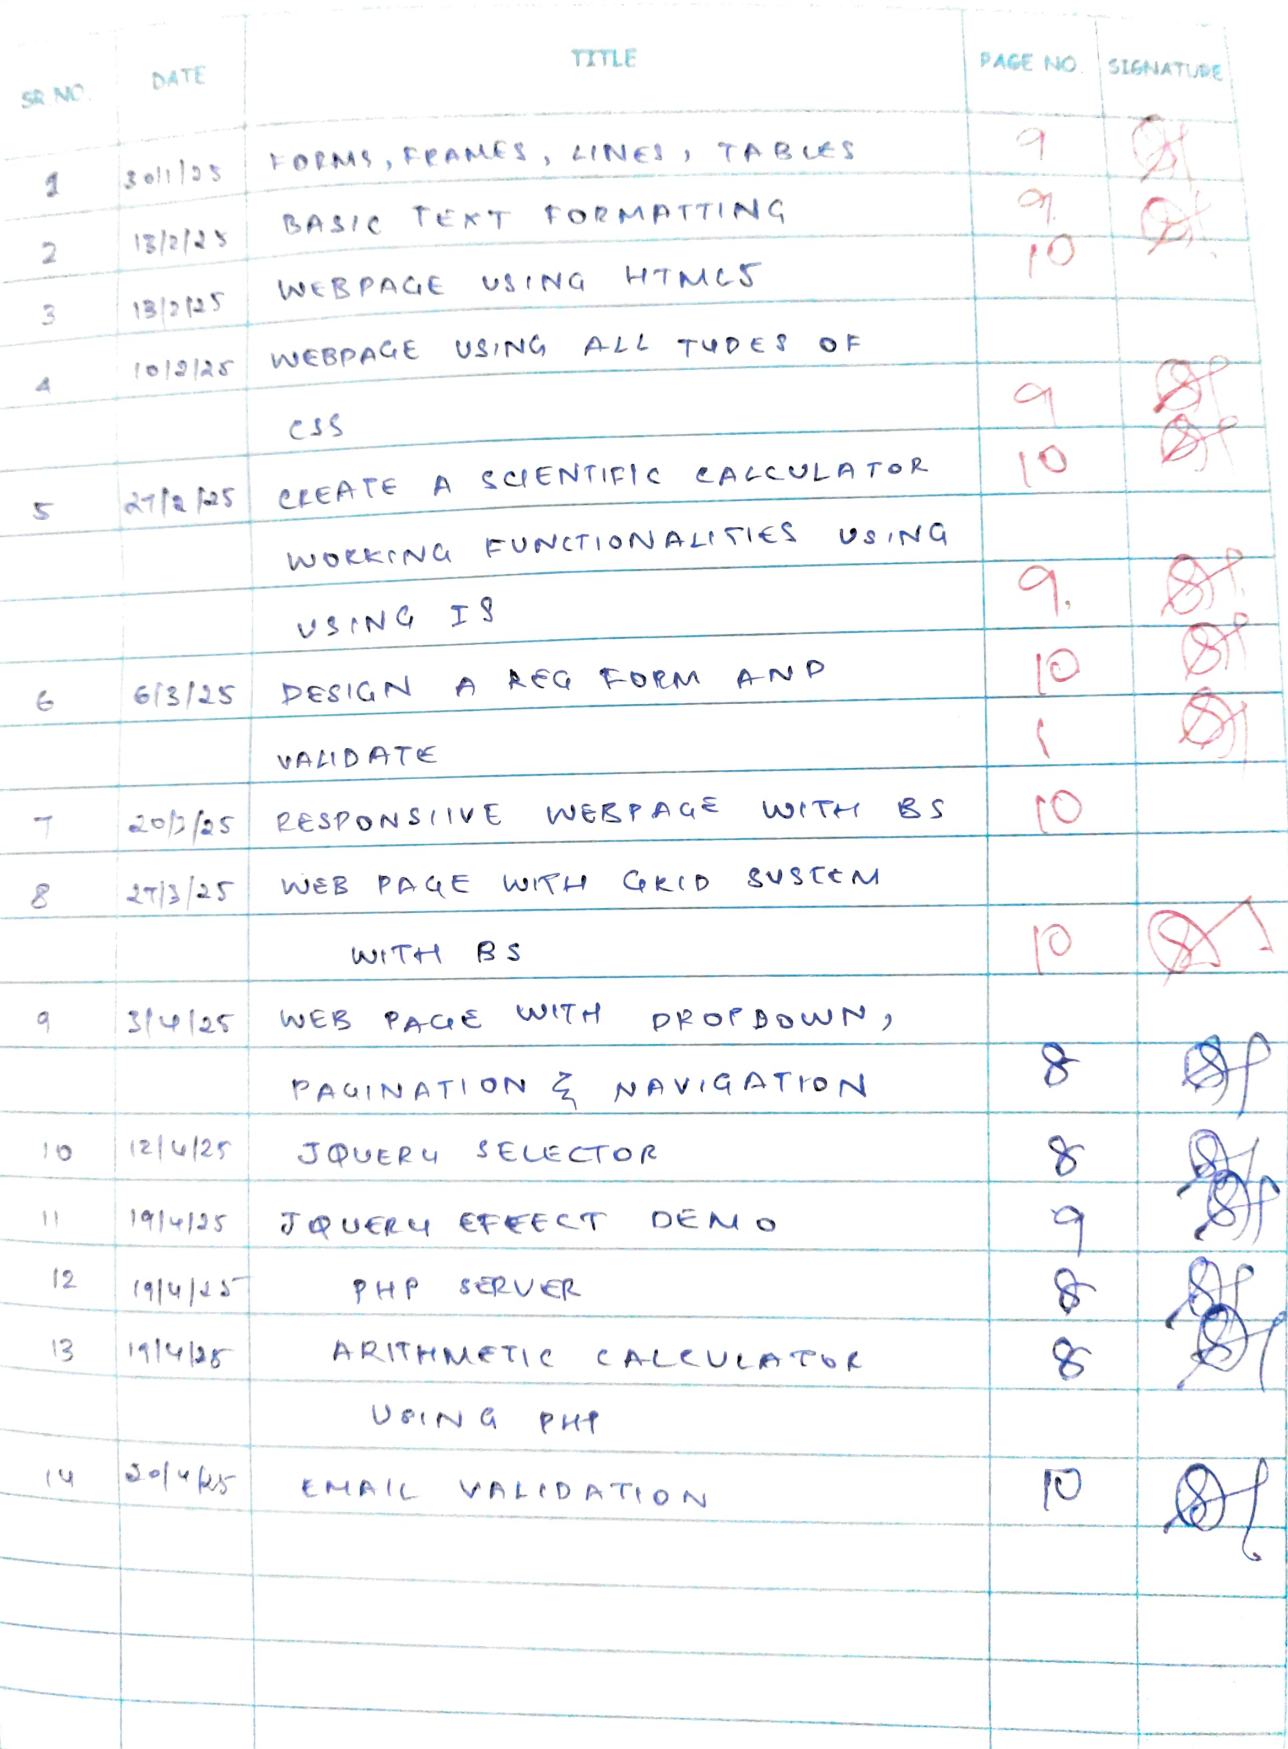 SR.NO. DATE TITLE PAGE NO. SIGNATURE
1 30/1/25 FORMS, FRAMES, LINES, TABLES 9
2 13/2/25 BASIC TEXT FORMATTING 9
3 13/2/25 WEBPAGE USING HTML5 10
4 10/2/25 WEBPAGE USING ALL TYPES OF
CSS 9
5 27/2/25 CREATE A SCIENTIFIC CALCULATOR 10
WORKING FUNCTIONALITIES USING
USING IS 9.
6 6/3/25 DESIGN A REG FORM AND 10
VALIDATE
7 20/3/25 RESPONSIIVE WEBPAGE WITH BS 10
8 27/3/25 WEB PAGE WITH GRID SYSTEM
WITH BS 10
9 3/4/25 WEB PAGE WITH DROPDOWN,
PAGINATION & NAVIGATION 8
10 12/4/25 JQUERY SELECTOR 8
11 19/4/25 JQUERY EFEECT DEMO 9
12 19/4/25 PHP SERVER 8
13 19/4/25 ARITHMETIC CALCULATOR 8
USING PHP
14 20/4/25 EMAIL VALIDATION 10